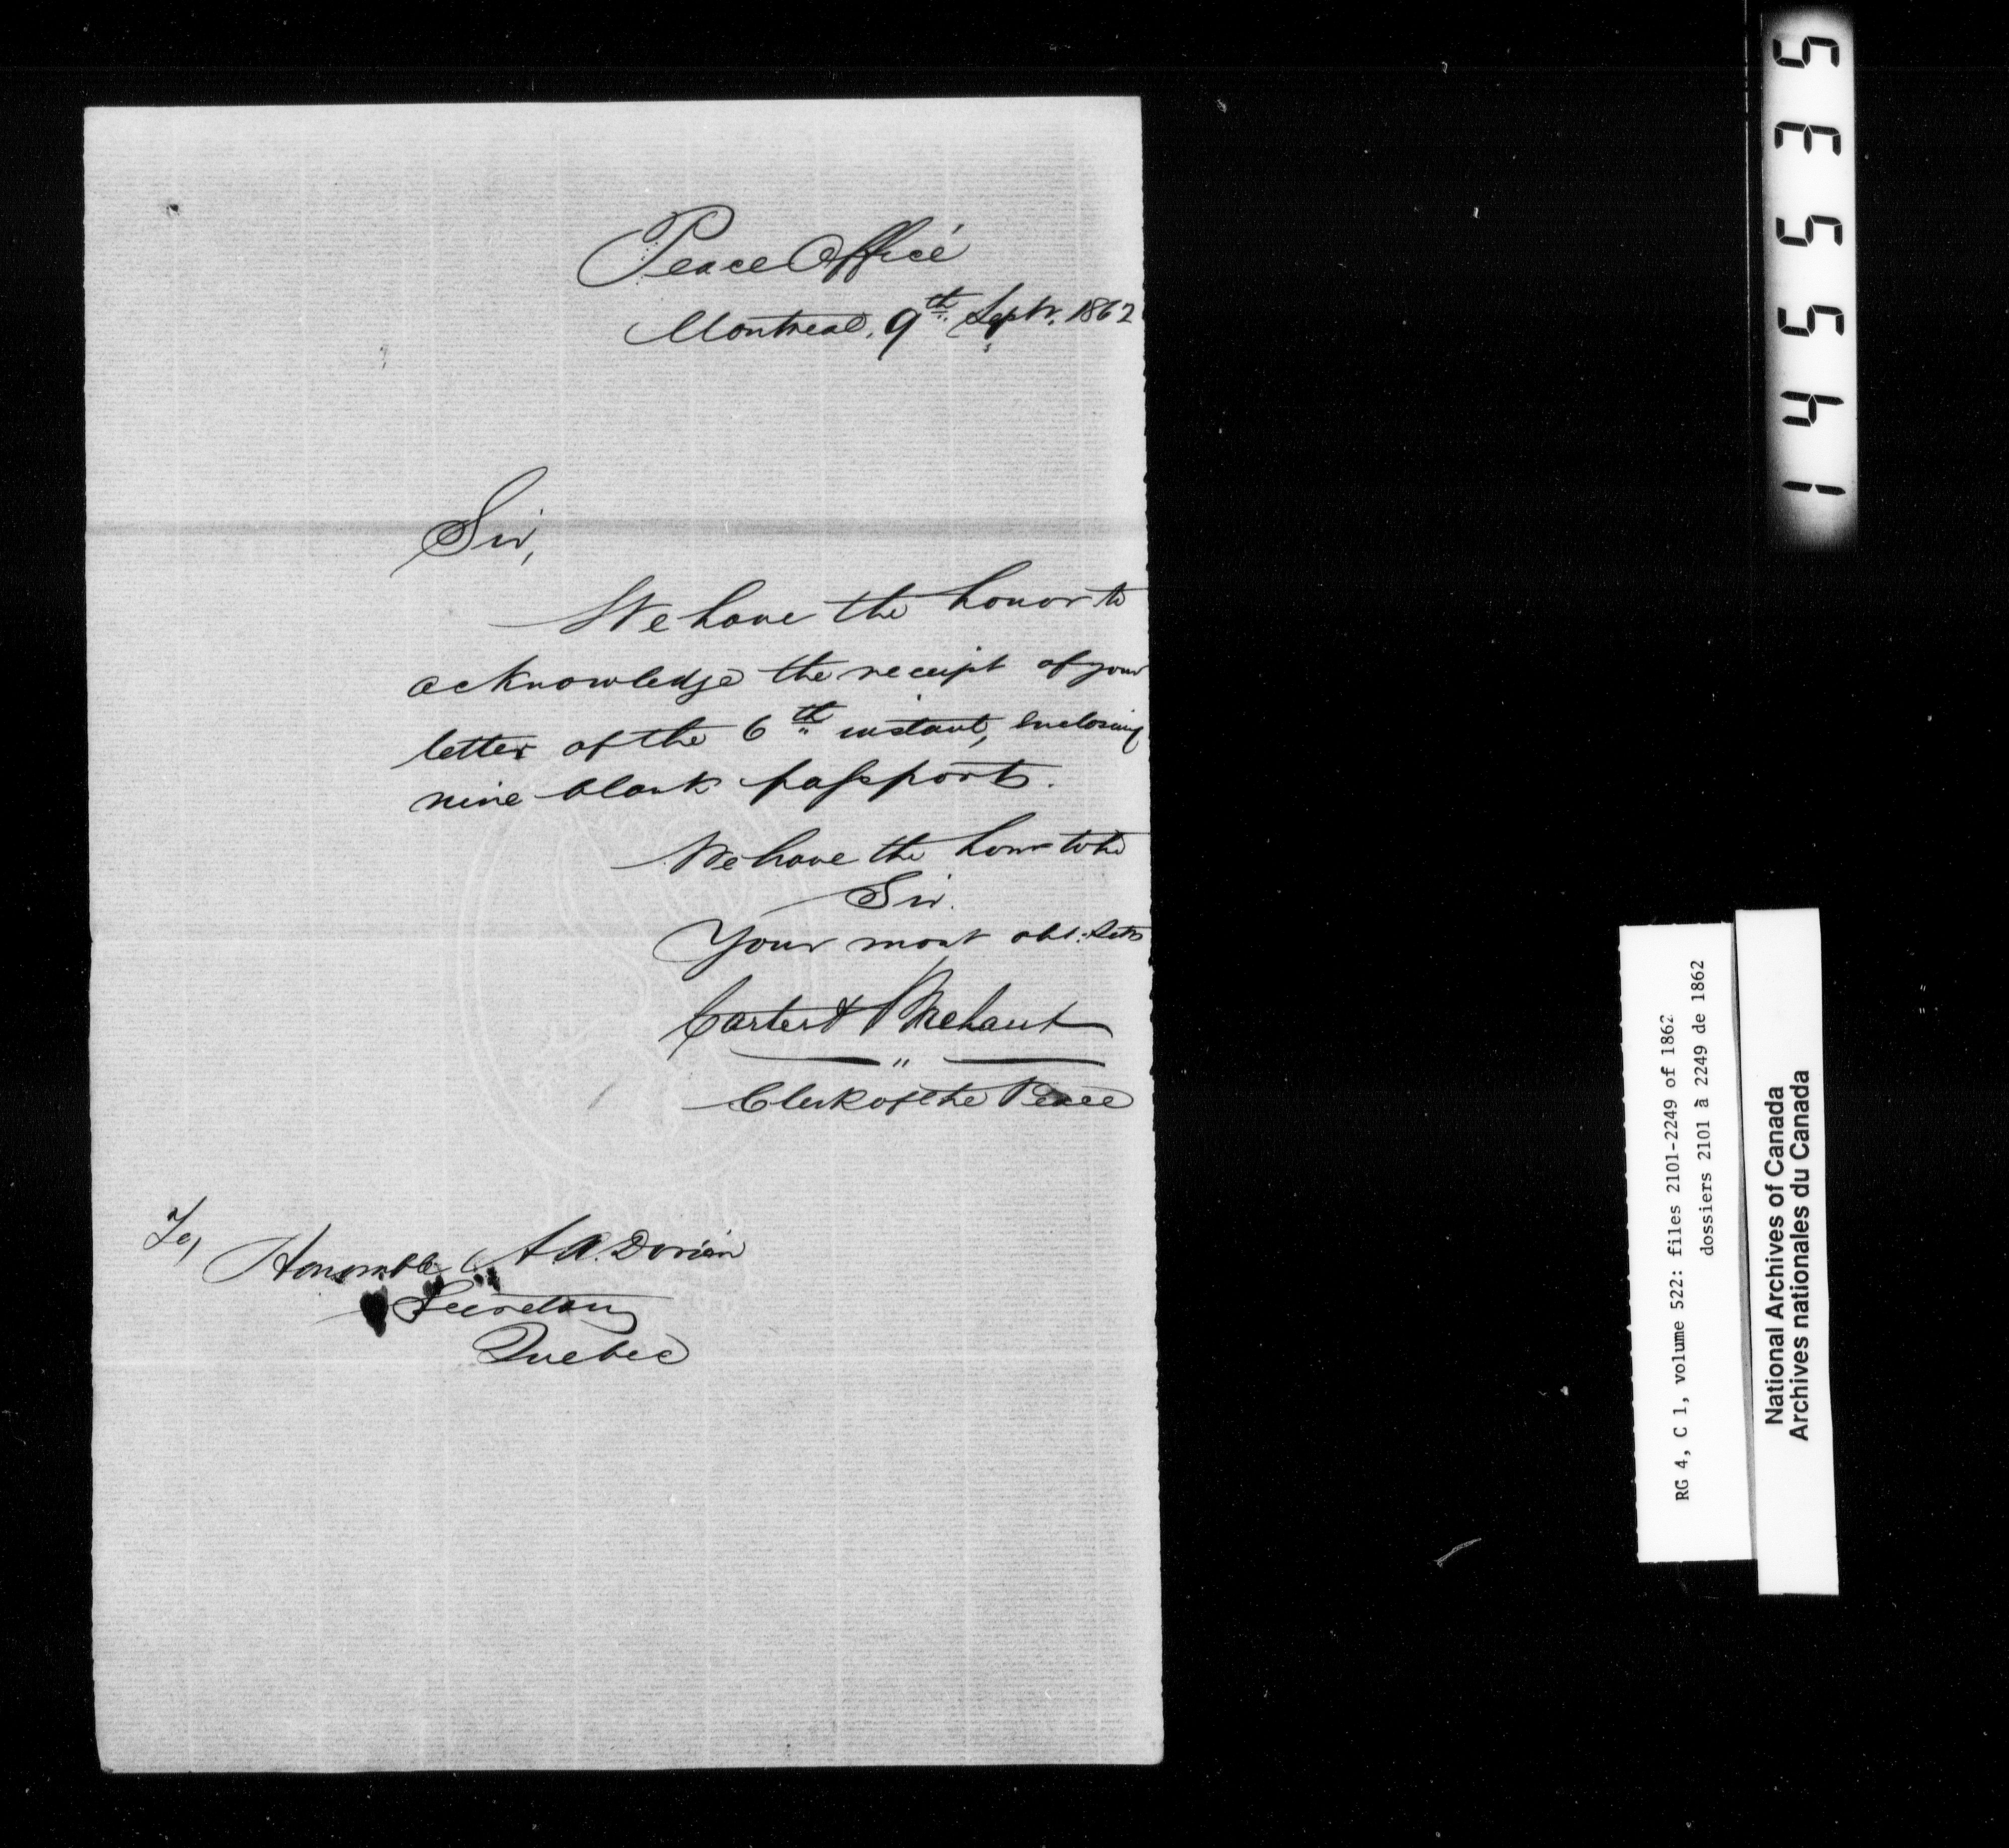 Peace Office
Montreal, 9th Septr. 1862
Sir,
We have the honor to
acknowledge the receipt of your
letter of the 6th instant, enclosing
nine blank passports.
We have the honor to be
Sir.
Your most obt. Svts
Carter &
Clerk of the Peace
To,
Honorable A A. Dorion
Secretary
Quebec
145535
RG 4, C 1, volume 522: files 2101-2249 of 1862
dossiers 2101 à 2249 de 1862
National Archives of Canada
Archives nationales du Canada